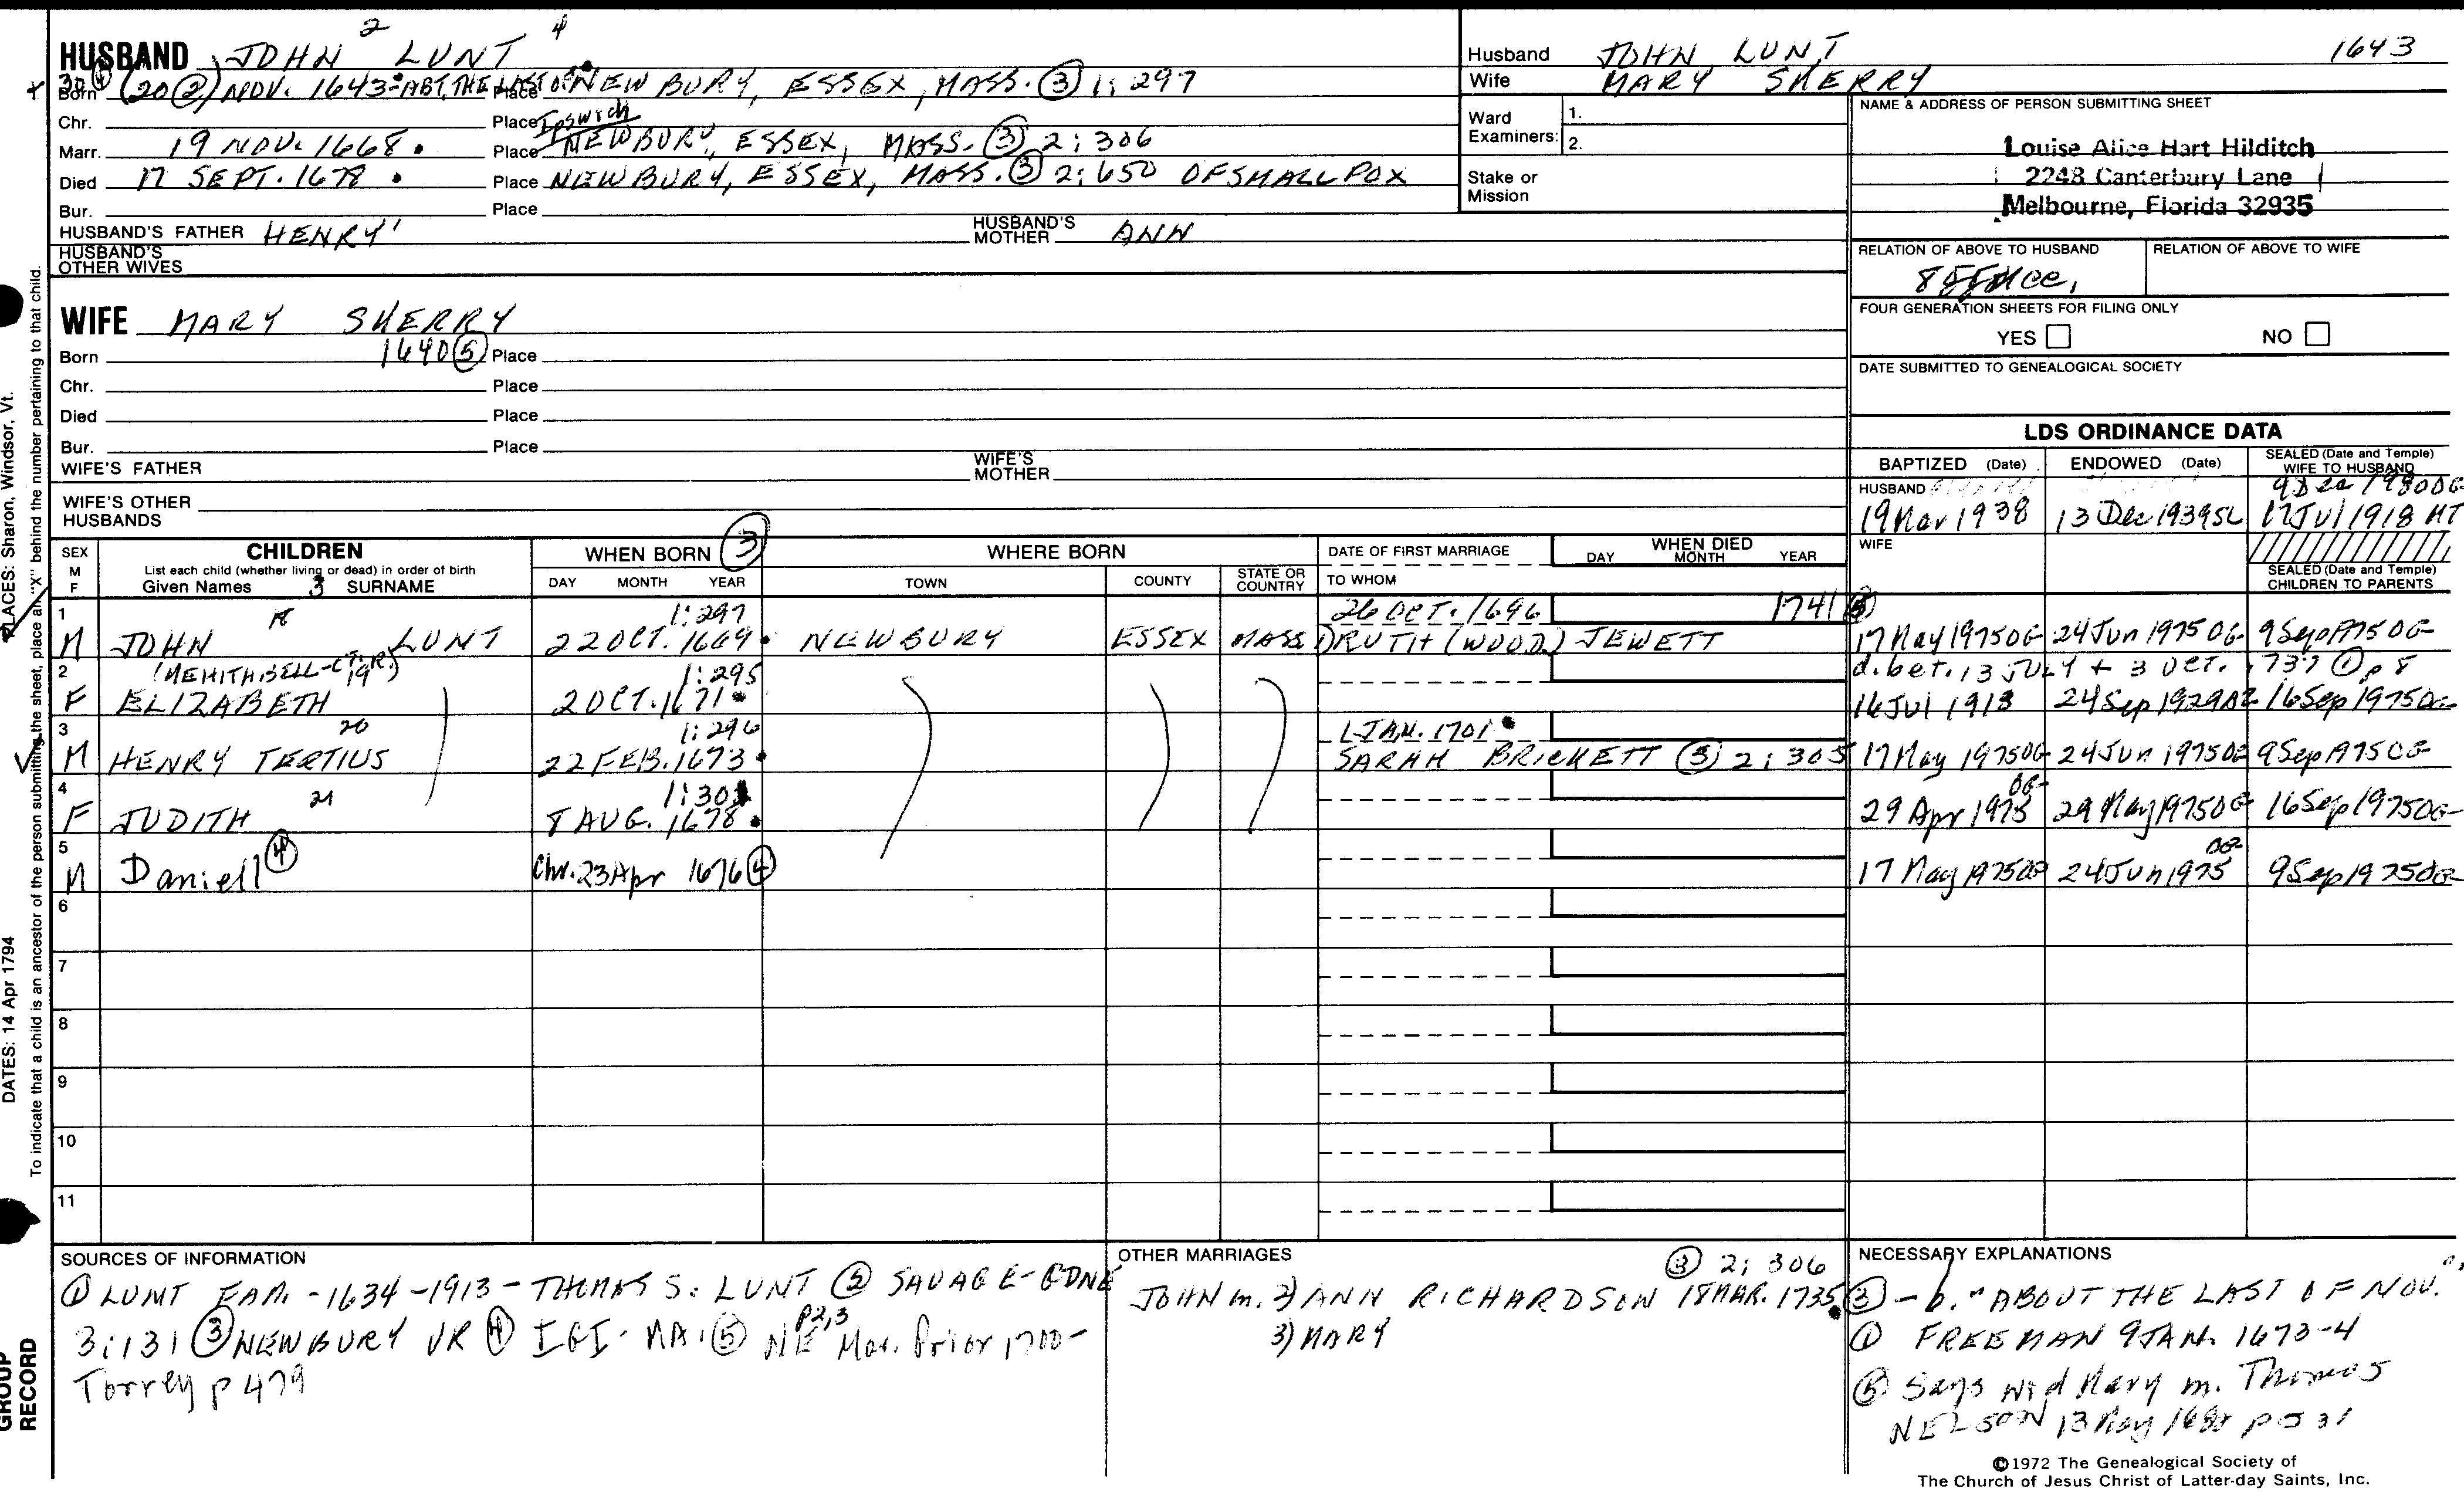 2 4
HUSBAND JOHN LUNT
Born 30 ④ (20②) NOV. 1643 = ABT. THE LAST OF Place NEWBURY, ESSEX, MASS. ③ 1: 297
Chr. Place Ipswich
Marr. 19 NOV. 1668. Place NEWBURY, ESSEX, MASS. ③ 2: 306
Died 17 SEPT. 1678. Place NEWBURY, ESSEX, MASS. ③ 2: 650 OF SMALL POX
Bur. Place
HUSBAND'S FATHER HENRY' HUSBAND'S MOTHER ANN
HUSBAND'S OTHER WIVES
WIFE MARY SHERRY
Born 1640⑤ Place
Chr. Place
Died Place
Bur. Place
WIFE'S FATHER WIFE'S MOTHER
WIFE'S OTHER HUSBANDS
Husband JOHN LUNT 1643
Wife MARY SHERRY
Ward Examiners: 1. 2.
Stake or Mission
NAME & ADDRESS OF PERSON SUBMITTING SHEET
Louise Alice Hart Hilditch
2248 Canterbury Lane
Melbourne, Florida 32935
RELATION OF ABOVE TO HUSBAND RELATION OF ABOVE TO WIFE
FOUR GENERATION SHEETS FOR FILING ONLY
YES NO
DATE SUBMITTED TO GENEALOGICAL SOCIETY
LDS ORDINANCE DATA
BAPTIZED (Date) ENDOWED (Date) SEALED (Date and Temple) WIFE TO HUSBAND
HUSBAND 9 Dec 1980 DG
19 Mar 1938 13 Dec 1939 SL 17 Jul 1918 MT
WIFE
SEALED (Date and Temple) CHILDREN TO PARENTS
SEX M F
CHILDREN
List each child (whether living or dead) in order of birth
Given Names 3 SURNAME
WHEN BORN ③
DAY MONTH YEAR
WHERE BORN
TOWN COUNTY STATE OR COUNTRY
DATE OF FIRST MARRIAGE
TO WHOM
WHEN DIED
DAY MONTH YEAR
1 1:297 26 OCT. 1696 1741 ⑤
M JOHN LUNT 22 OCT. 1669. NEWBURY ESSEX MASS 1) RUTH (WOOD) JEWETT 17 May 1975 OG 24 Jun 1975 OG 9 Sep 1975 OG
2 (MEHITHBELL-CT.R) 19 1:295 d. bet. 13 JULY + 3 OCT. 1737 ① p 8
F ELIZABETH 2 OCT. 1671. 16 Jul 1918 24 Sep 1929 AZ 16 Sep 1975 OG
3 20 1:296 1 JAN. 1701.
M HENRY TERTIUS 22 FEB. 1673. SARAH BRICKETT ③ 2: 305 17 May 1975 OG 24 Jun 1975 OG 9 Sep 1975 OG
4 21
F JUDITH 8 AUG. 1678. 29 Apr 1975 OG 29 May 1975 OG 16 Sep 1975 OG
5
M Daniell④ Chr. 23 Apr 1676④ 17 May 1975 OG 24 Jun 1975 OG 9 Sep 1975 OG
6
7
8
9
10
11
SOURCES OF INFORMATION
① LUNT FAM. - 1634 - 1913 - THOMAS S. LUNT ② SAVAGE-GDNE
3:131 ③ NEWBURY VR ④ IGI - MA. ⑤ p2,3 NE Mar. Prior 1700 -
Torrey p 479
OTHER MARRIAGES
③ 2; 306
JOHN m. 2) ANN RICHARDSON 18 MAR. 1735
3) MARY
NECESSARY EXPLANATIONS
③ - b. "ABOUT THE LAST OF NOV."
① FREEMAN 9 JAN. 1673-4
⑤ Says wid Mary m. Thomas
NELSON 13 May 1680 p 531
©1972 The Genealogical Society of
The Church of Jesus Christ of Latter-day Saints, Inc.
PLACES: Sharon, Windsor, Vt.
DATES: 14 Apr 1794
To indicate that a child is an ancestor of the person submitting the sheet, place an "X" behind the number pertaining to that child.
GROUP
RECORD